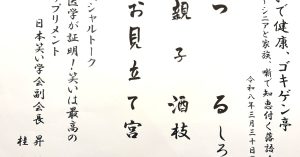 で健康、ゴキゲン亭
シニアと家族、噺で知恵付く落語
令和八年三月三十日
つる しろ
親子酒 枝
お見立て 宮
シャルトーク
医学が証明!笑いは最高の
プリメント
日本笑い学会副会長 昇
桂